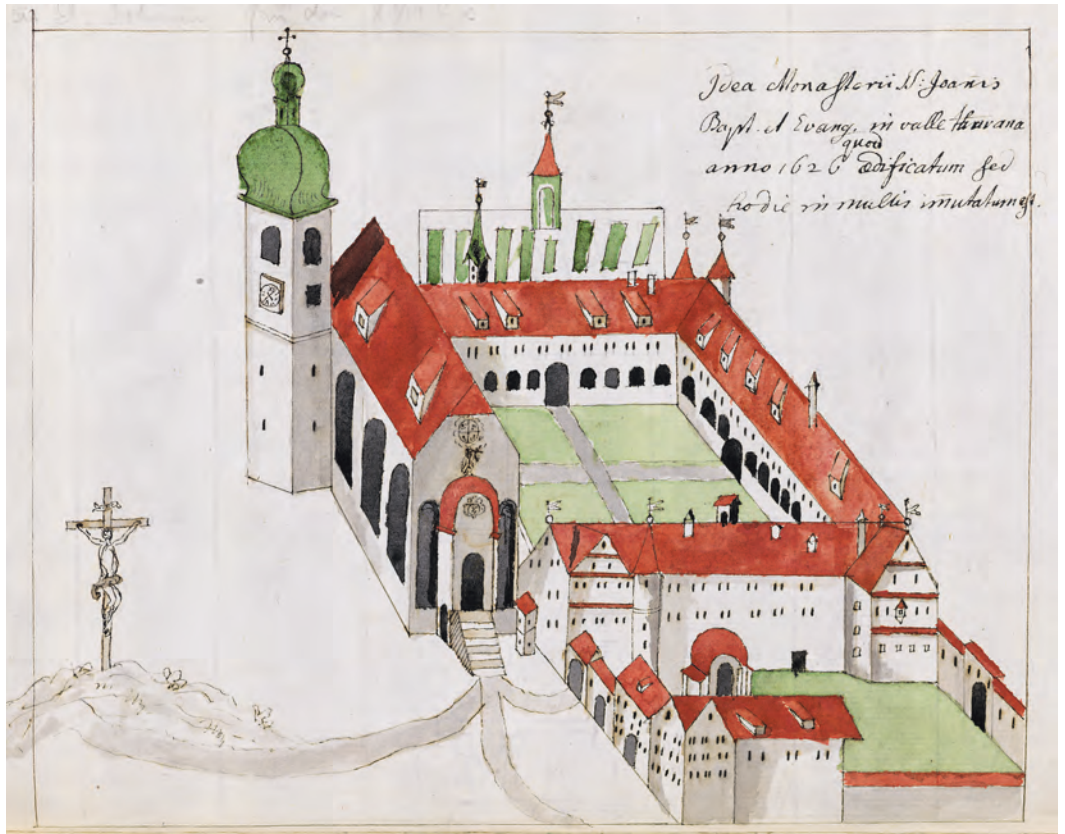 Idea Monasterii S: Joan̄is
Bapt. et Evang. in valle thurana
quod
anno 1626 ædificatum sed
hodie in multis im̄utatum est.